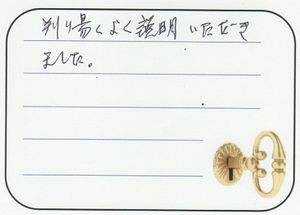 判り易くよく説明いただき
ました。